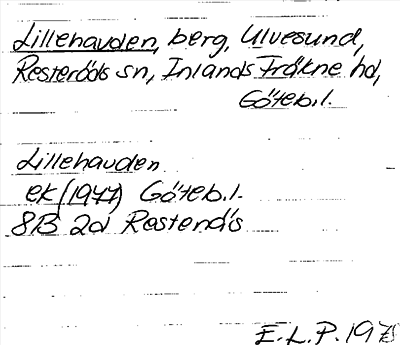 Lillehauden, berg, Ulvesund,
Resteröds sn, Inlands Fräkne hd,
Göteb.l.
Lillehauden
ek (1977) Göteb.l.
8B 2d Restenäs
E.L.P. 1978